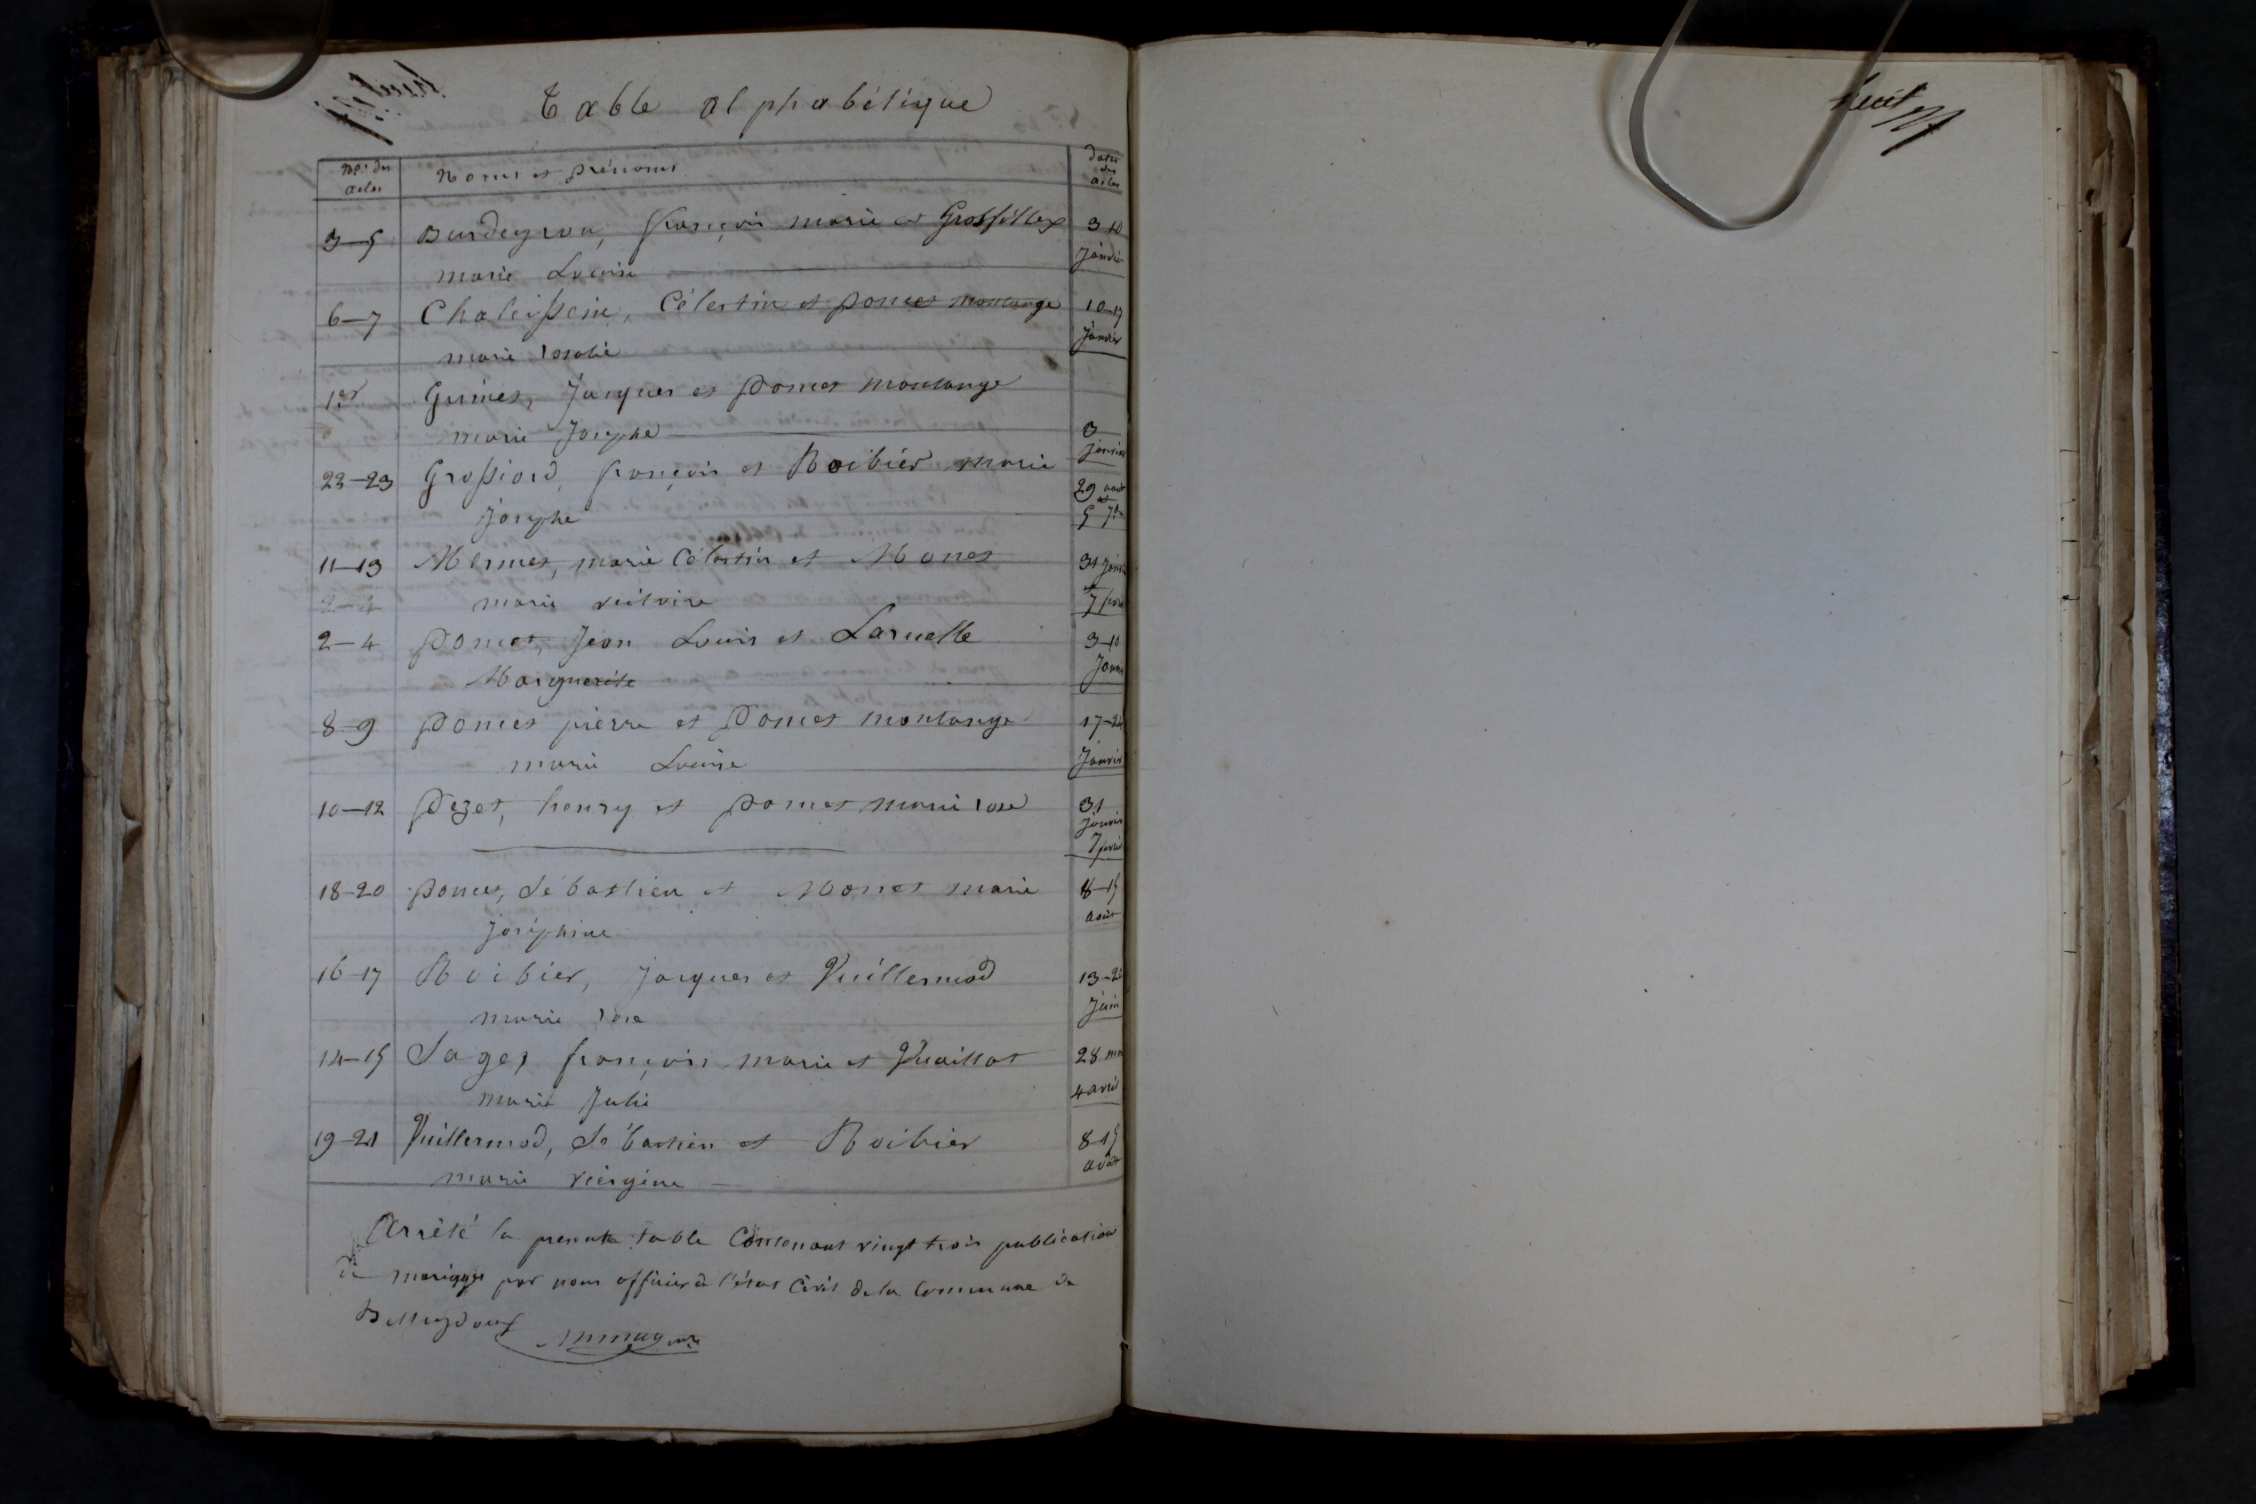 Table alphabétique
Nos des actes
Noms et prénoms
Dates des actes
3-5 Burdeyron, françois marie et Grosfillex 3-10
marie Louise janvier
6-7 Chaleissein, Célestin et poncet montange 10-17
marie rosalie janvier
1er Grinet, Jacques et Poncet montange
marie Josephe 3
janvier
22-23 Grossiord, françois et Roibier marie 29 aout
et
Josephe 5 7bre
11-13 Mermet, marie Célestin et Monet 31 janvier
2-4 marie victoire 7 fevrier
2-4 Poncet, Jean Louis et Laruelle 3-10
Marguerite Janvier
8-9 Poncet pierre et Poncet montange 17-24
marie Louise Janvier
10-12 Pezet, henry et poncet marie rose 31
Janvier
7 fevrier
18-20 poncet, Sébastien et Monet marie 8-15
joséphine août
16-17 Roibier, jacques et Vuillermod 13-20
marie rose Juin
14-15 Sage, françois marie et Vuaillat 28 mars
marie Julie 4 avril
19-21 Vuillermod, Sébastien et Roibier 8-15
marie viergine août
Arrêté la presente table Contenant vingt trois publication
de mariages par nous officier de l'état Civil de la Commune de
Belleydoux